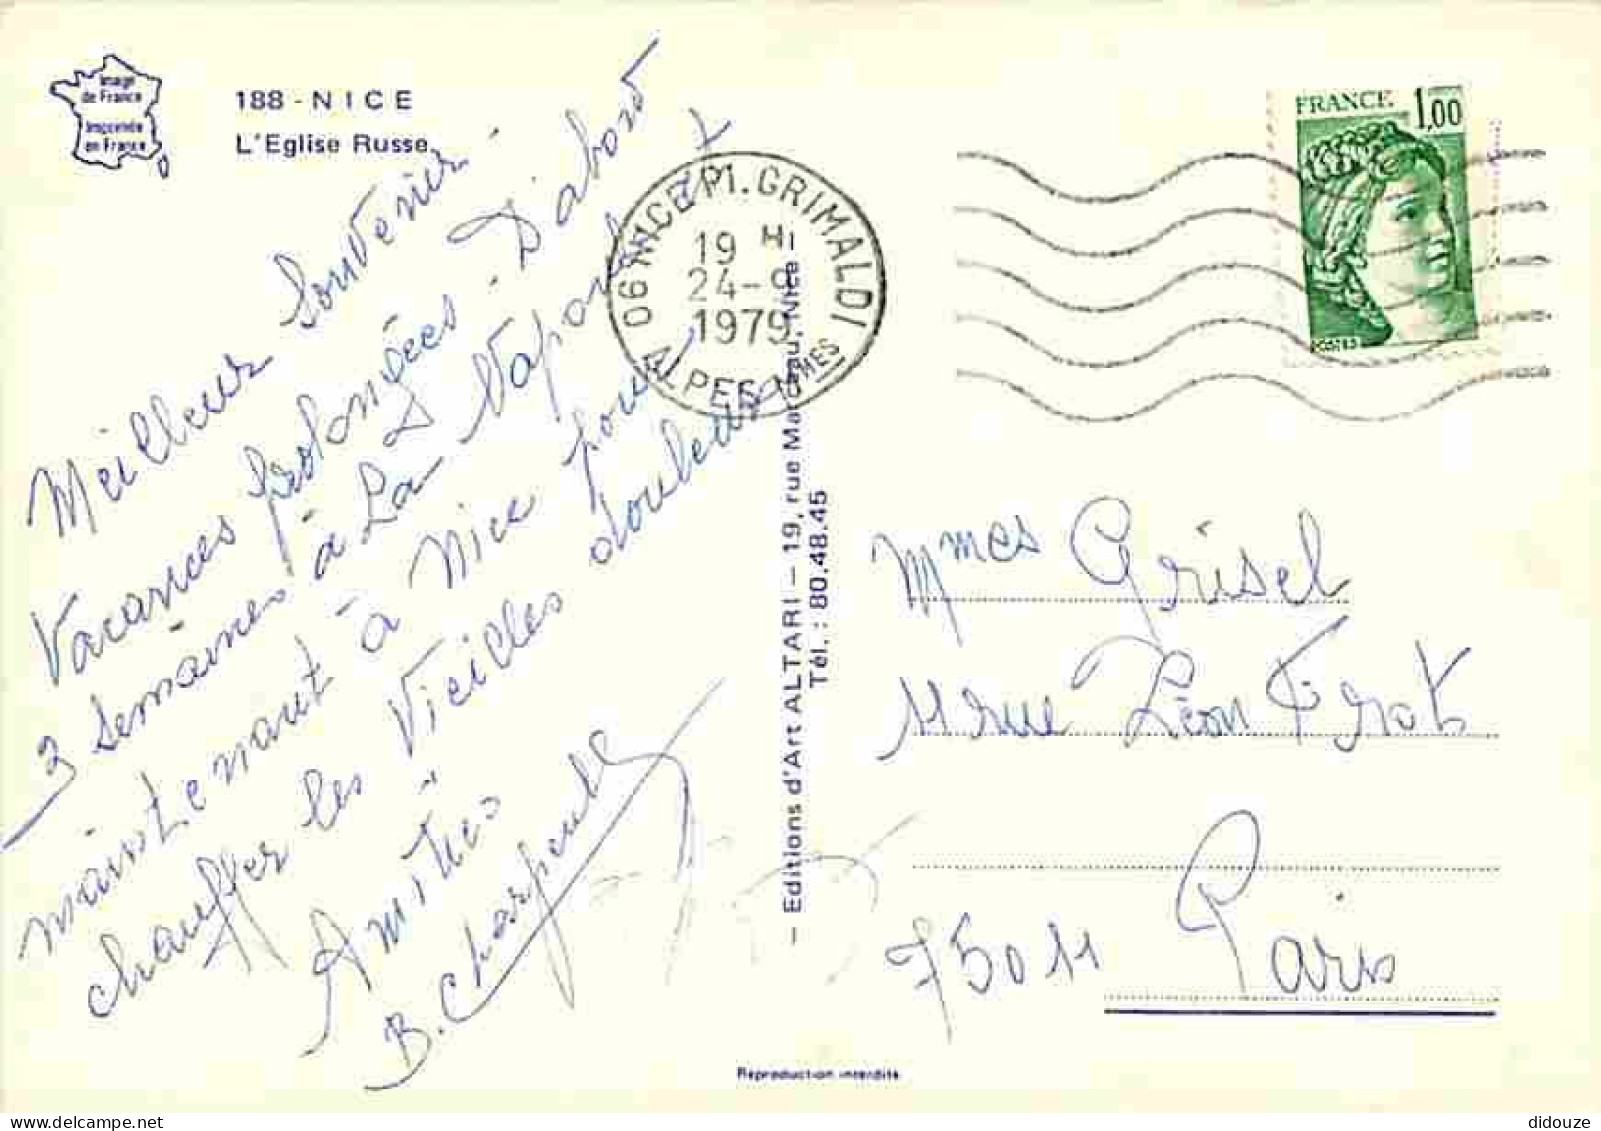 Image
de France
Imprimée
en France
188 - NICE
L'Eglise Russe
Meilleurs Souvenirs
Vacances prolongées. D'abord
3 semaines à La Napoule et
maintenant à Nice pour
chauffer les vieilles douleurs
Amitiés
B. Charpentier
06 NICE PL. GRIMALDI
19 H
24-9
1979
ALPES MMES
FRANCE 1,00
POSTES
— Editions d'Art ALTARI — 19, rue Nice
Tél. : 80.48.45
Mmes Grisel
11 rue Léon Frot
75011 Paris
Reproduction interdite
didouze